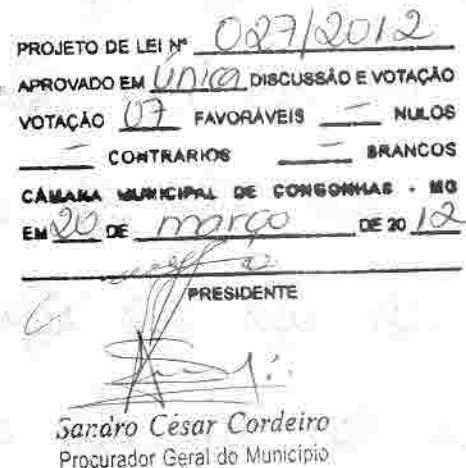 PROJETO DE LEI Nº 027/2012
APROVADO EM única DISCUSSÃO E VOTAÇÃO
VOTAÇÃO 07 FAVORÁVEIS — NULOS
— CONTRÁRIOS — BRANCOS
CÂMARA MUNICIPAL DE CONGONHAS - MG
EM 20 DE março DE 2012
PRESIDENTE
Sandro César Cordeiro
Procurador Geral do Município